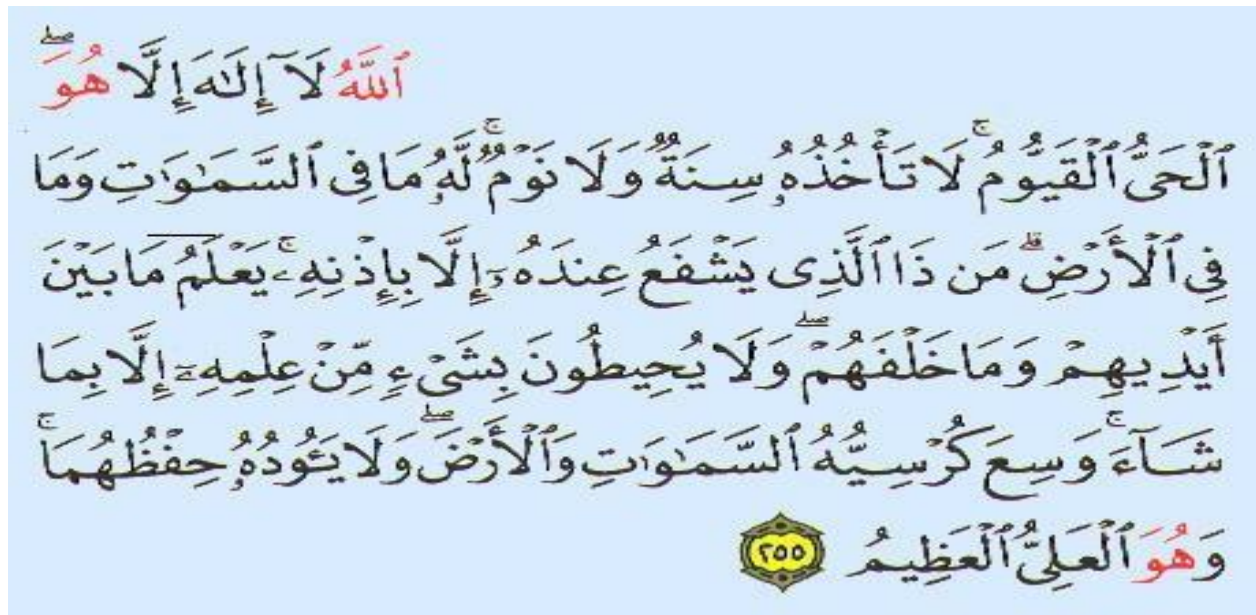 ٱللَّهُ لَآ إِلَٰهَ إِلَّا هُوَ ۖ
ٱلْحَىُّ ٱلْقَيُّومُ ۚ لَا تَأْخُذُهُۥ سِنَةٌ وَلَا نَوْمٌ ۚ لَّهُۥ مَا فِى ٱلسَّمَٰوَٰتِ وَمَا
فِى ٱلْأَرْضِ ۗ مَن ذَا ٱلَّذِى يَشْفَعُ عِندَهُۥٓ إِلَّا بِإِذْنِهِۦ ۚ يَعْلَمُ مَا بَيْنَ
أَيْدِيهِمْ وَمَا خَلْفَهُمْ ۖ وَلَا يُحِيطُونَ بِشَىْءٍ مِّنْ عِلْمِهِۦٓ إِلَّا بِمَا
شَآءَ ۚ وَسِعَ كُرْسِيُّهُ ٱلسَّمَٰوَٰتِ وَٱلْأَرْضَ ۖ وَلَا يَـُٔودُهُۥ حِفْظُهُمَا ۚ
وَهُوَ ٱلْعَلِىُّ ٱلْعَظِيمُ ٢٥٥